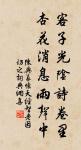 客子光陰詩卷里
杏花消息雨聲中
陳與義懷天經智老因
訪之詩典網集